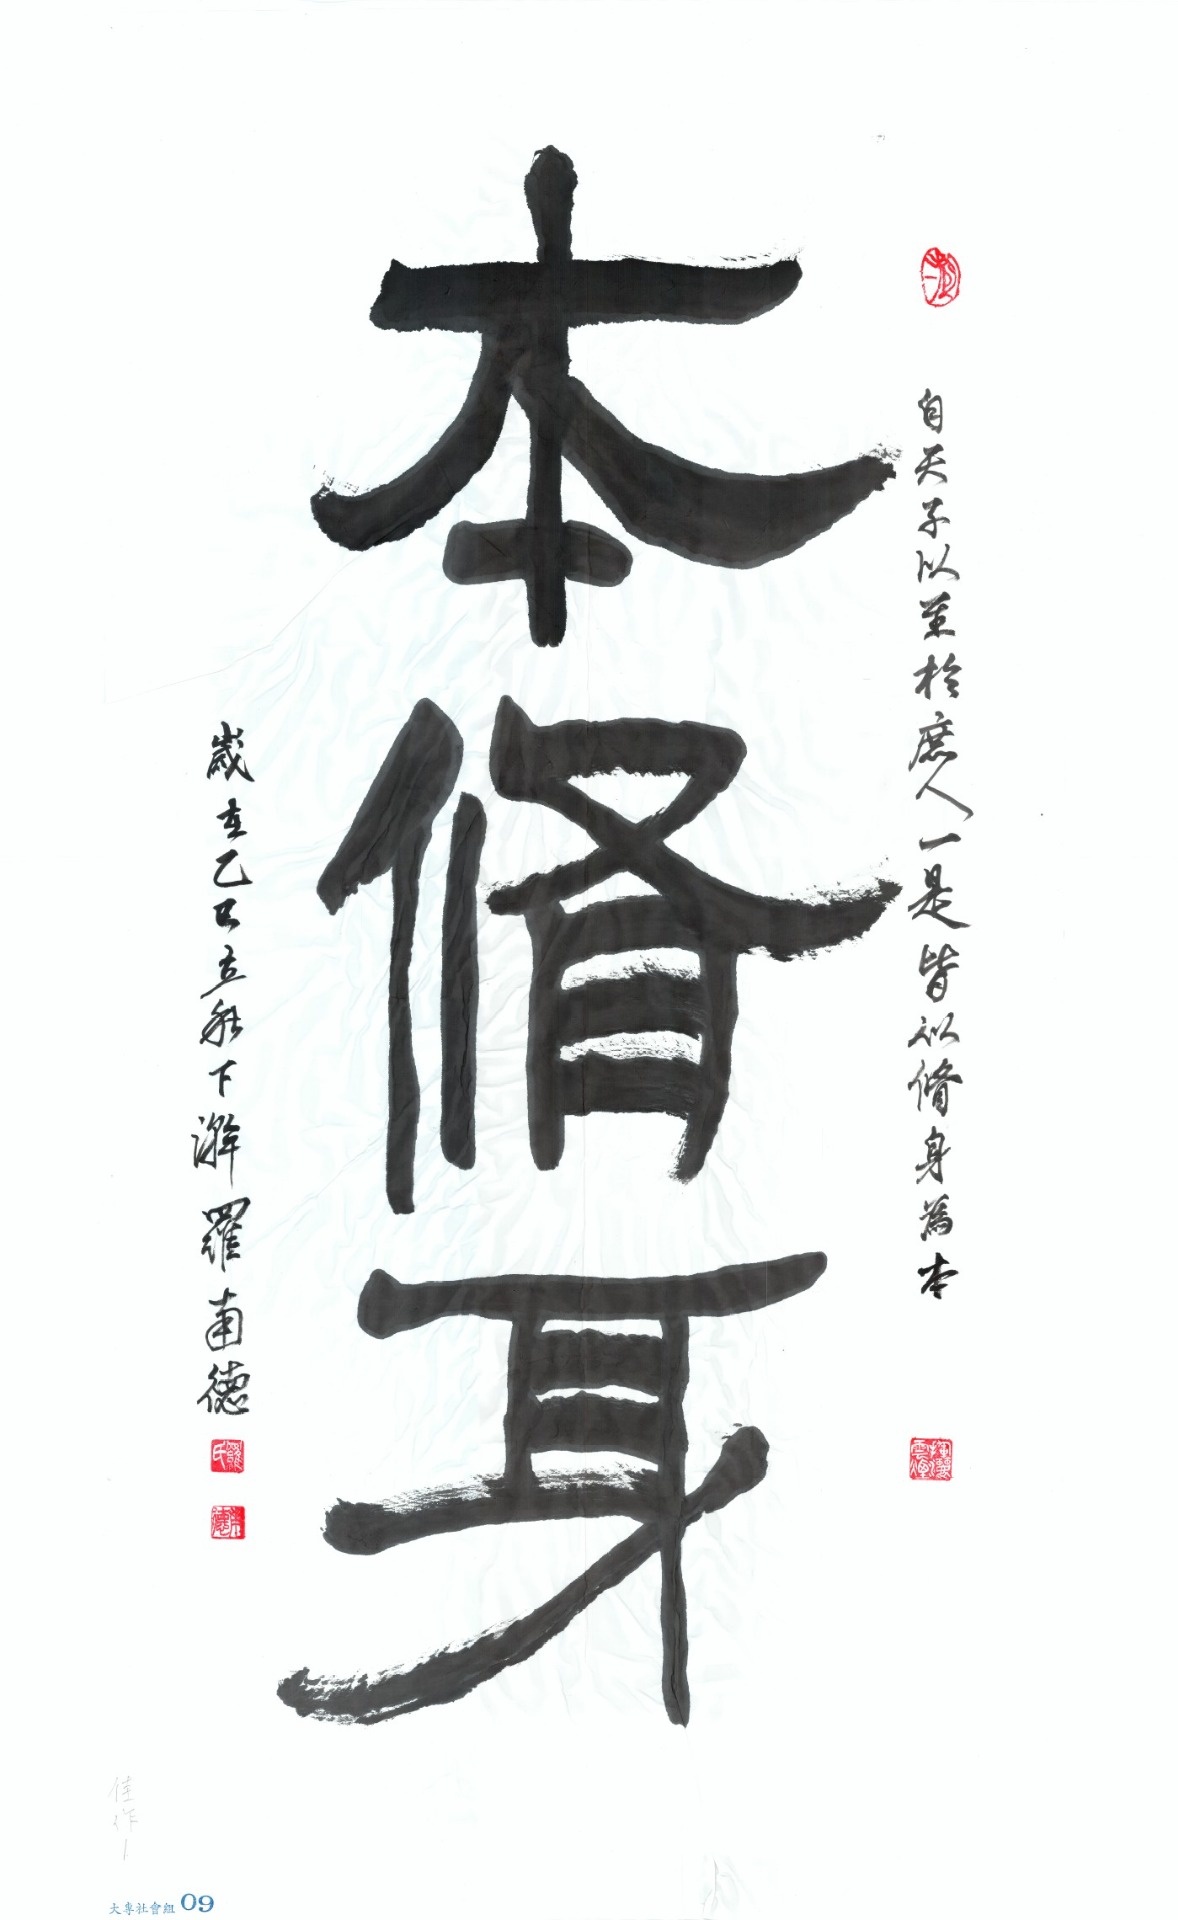 本脩身
自天子以至於庶人一是皆以脩身為本
歲在乙巳立秋下澣羅甫德
羅氏
佳作1
大專社會組 09